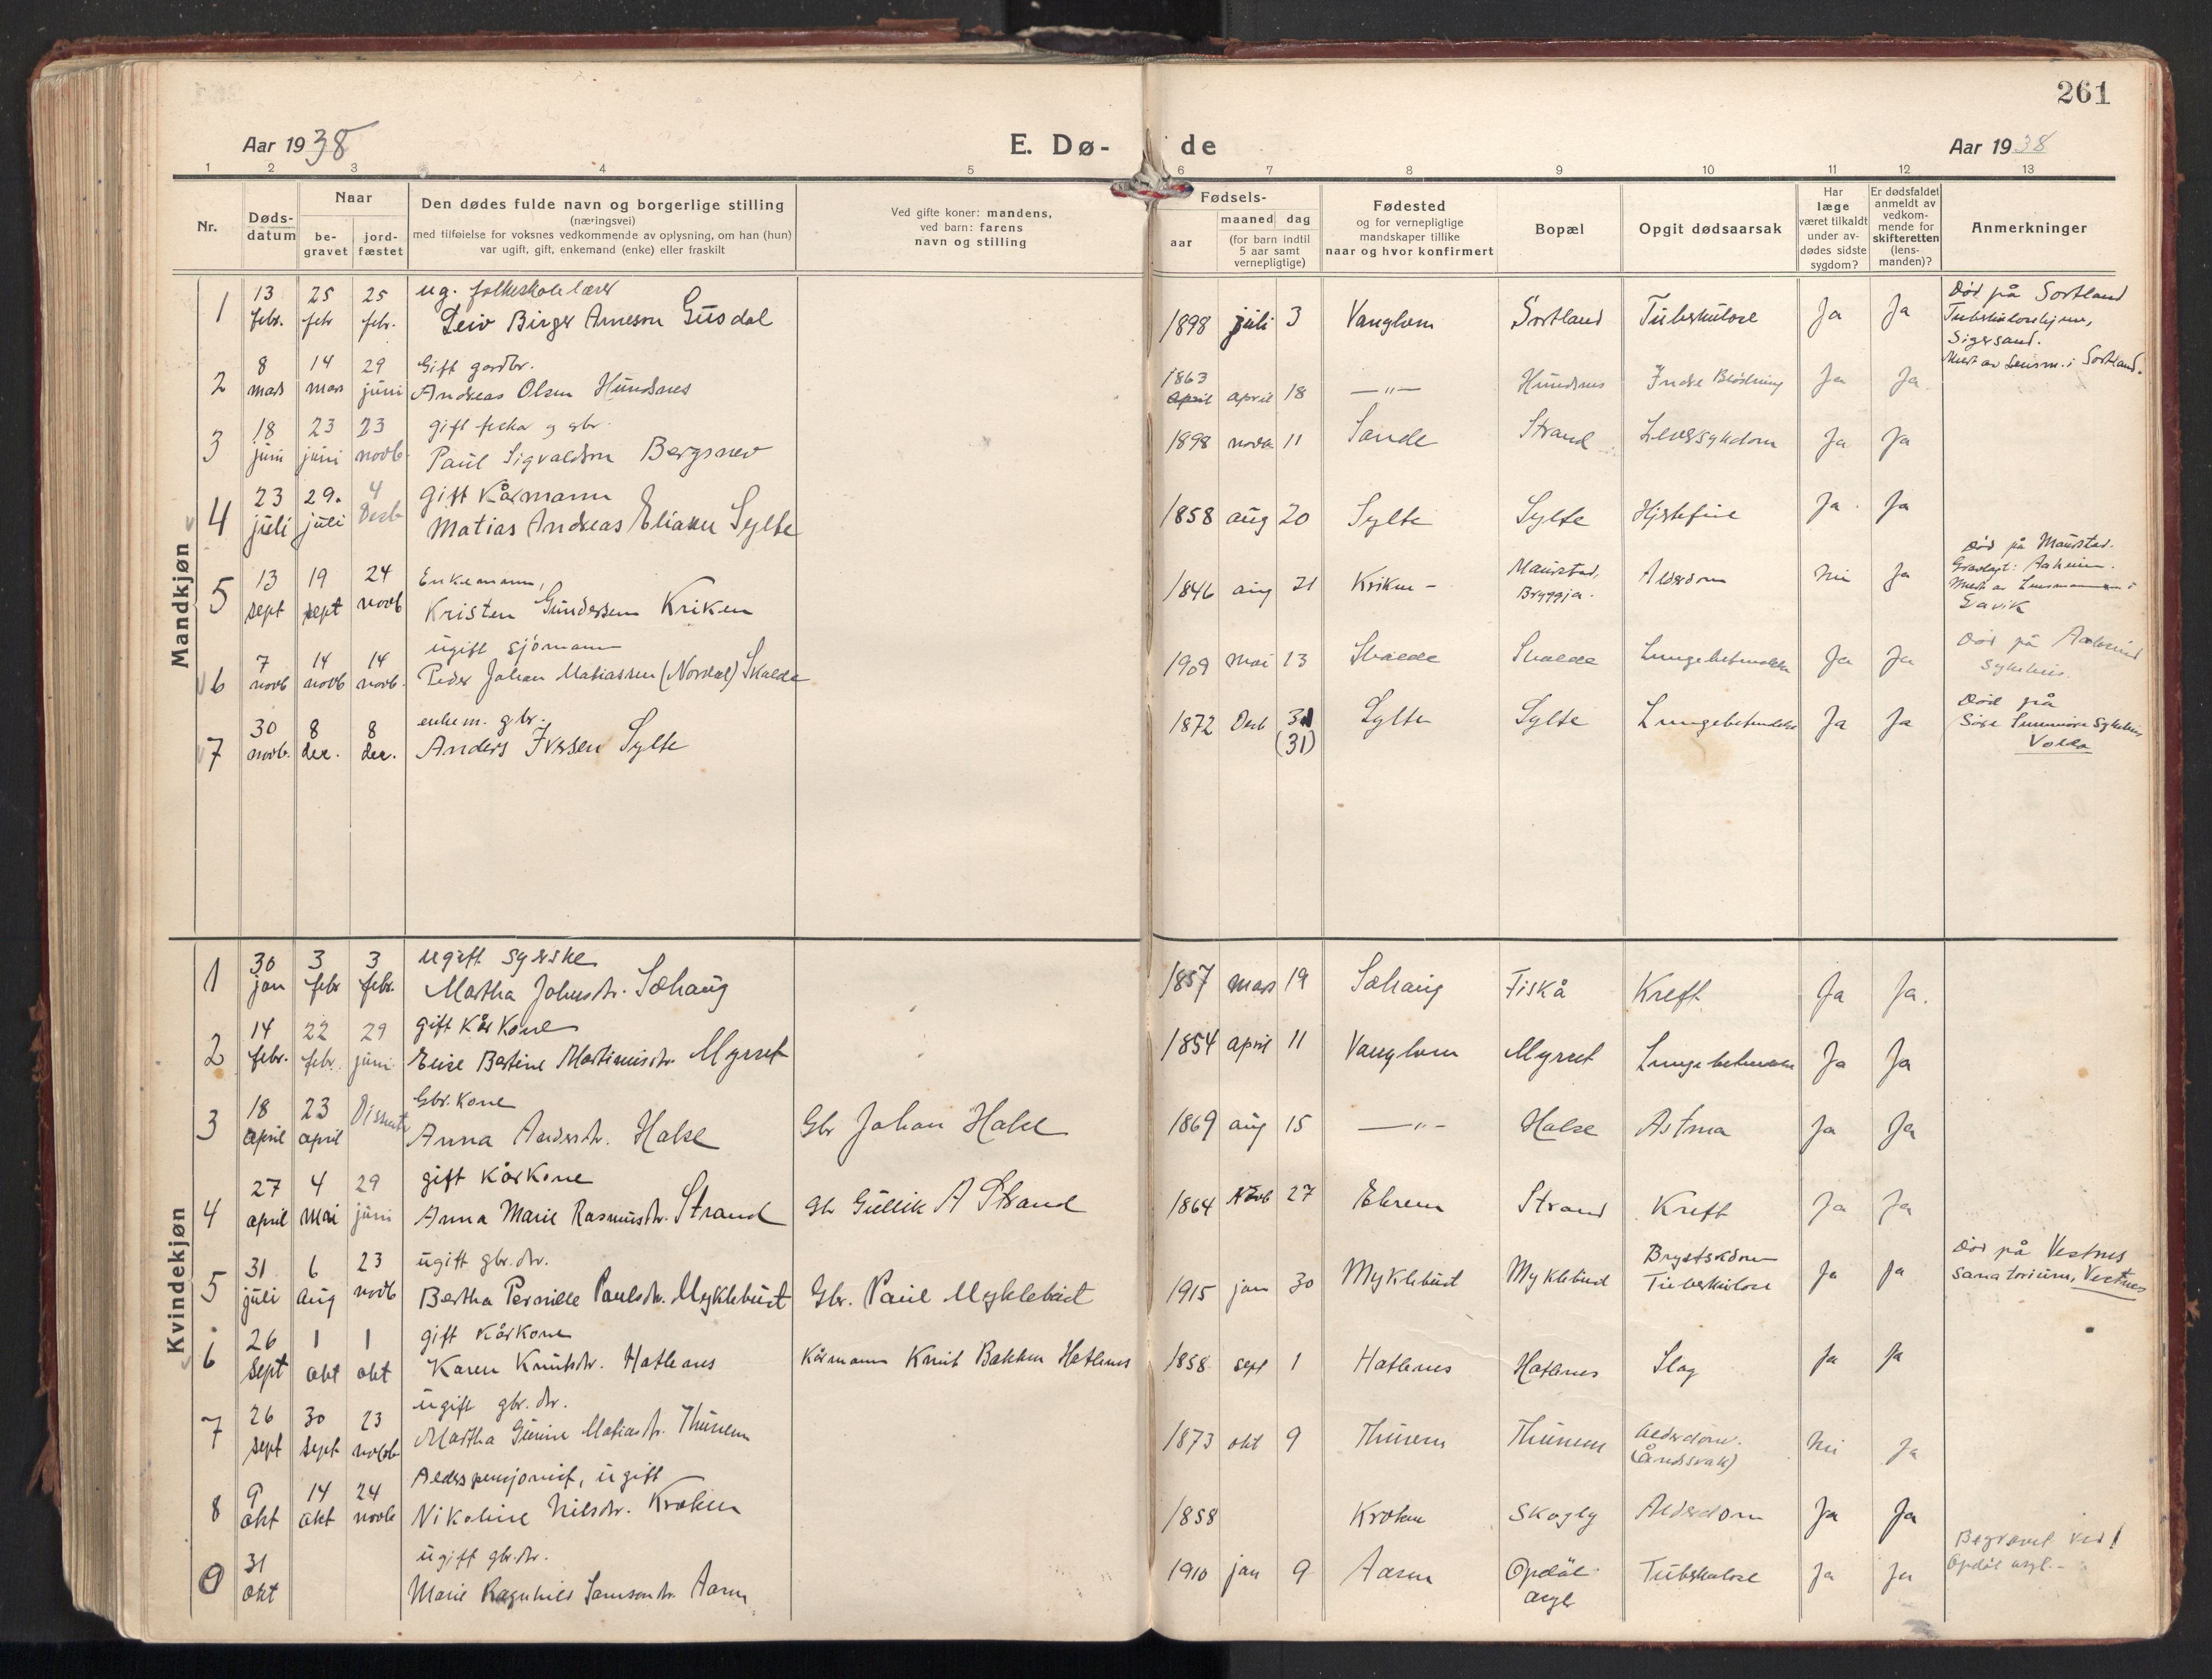 261
Aar 1938
E. Dø-
de
Aar 1938
1 2 3 4 5 6 7 8 9 10 11 12 13
Nr.
Døds-
datum
Naar
be-
gravet
jord-
fæstet
Den dødes fulde navn og borgerlige stilling
(næringsvei)
med tilføielse for voksnes vedkommende av oplysning, om han (hun)
var ugift, gift, enkemand (enke) eller fraskilt
Ved gifte koner: mandens,
ved barn: farens
navn og stilling
Fødsels-
aar
maaned dag
(for barn indtil
5 aar samt
vernepligtige)
Fødested
og for vernepligtige
mandskaper tillike
naar og hvor konfirmert
Bopæl
Opgit dødsaarsak
Har
læge
været tilkaldt
under av-
dødes sidste
sygdom?
Er dødsfaldet
anmeldt av
vedkom-
mende for
skifteretten
(lens-
manden)?
Anmerkninger
Mandkjøn
1 13 febr. 25 febr 25 febr. ug. folkeskolelærer
Leiv Birger Arneson Gusdal 1898 juli 3 Vanglven Sortland Tuberkulose Ja Ja
Død på Sortland
Tuberkulosehjem,
Sigersand.
Meldt av Lensm. i Sortland.
2 8 mars 14 mars 29 juni Gift gardbr.
Andreas Olsen Hundsnes 1863 april april 18 —"— Hundsnes Indre Blødning Ja Ja
3 18 juni 23 juni 23 novb. gift fisker og gbr.
Paul Sigvaldson Bergsnev 1898 novb 11 Sande Strand Leversykdom Ja Ja
4 23 juli 29. juli 4 Desb gift Kårmann
Matias Andreas Eliassen Sylte 1858 aug 20 Sylte Sylte Hjertefeil Ja Ja
5 13 sept 19 sept 24 novb Enkemann,
Kristen Gundersen Kriken 1846 aug 21 Kriken - Maurstad, Bryggja. Alderdom Nei Ja
Død på Maurstad.
Gravlagt: Aaheim.
Meldt av Lensmannen i
Davik
6 7 novb 14 novb 14 novb. ugift sjömann
Peder Johan Matiassen (Nordal) Skalde 1909 mai 13 Skalde Skalde Lungebetendelse Ja Ja
Død på Aalesund
sykehus.
7 30 novb. 8 dec. 8 dec. enkem. gbr.
Anders Iversen Sylte 1872 Desb 31 (31) Sylte Sylte Lungebetendelse Ja Ja
Død på
Söre Sunnmöre Sykehus
Volda
Kvindekjøn
1 30 jan 3 febr 3 febr. ugift syerske
Martha Johnsdtr. Sæhaug 1857 mars 19 Sæhaug Fiskå Kreft Ja Ja.
2 14 febr. 22 febr. 29 juni gift Kårkone
Elise Bertine Martinusdtr. Myrset 1854 april 11 Vanglven Myrset Lungebetendelse Ja Ja
3 18 april 23 april Gbr. kone
Anna Andersdtr. Halse Gbr Johan Halse 1869 aug 15 —"— Halse Astma Ja Ja
4 27 april 4 mai 29 juni gift Kårkone
Anna Marie Rasmusdtr. Strand Gbr Gullik A Strand 1864 Novb 27 Ekrem Strand Kreft Ja Ja
5 31 juli 6 aug 23 novb ugift gbr. dtr.
Bertha Pernille Paulsdtr. Myklebust Gbr. Paul Myklebust 1915 jan 30 Myklebust Myklebust Brystsykdom Tuberkulose Ja Ja
Død på Vestnes
sanatorium, Vestnes
6 26 sept 1 okt 1 okt gift Kårkone
Karen Knutsdtr. Hatlenes Kårmann Knut Bakken Hatlenes 1858 sept 1 Hatlenes Hatlenes Slag Ja Ja
7 26 sept 30 sept 23 novb ugift gbr. dtr.
Martha Gurine Matiasdtr. Thunem 1873 okt 9 Thunem Thunem Alderdom. (Åndssvak) Nei Ja
8 9 okt 14 okt 24 novb Alderspensjonist, ugift
Nikoline Nilsdtr. Kroken 1858 Kroken Skogly Alderdom Ja Ja
9 31 okt ugift gbr. dtr.
Marie Ragnhild Samsondtr. Aasen 1910 jan 9 Aasen Opdøl asyl Tuberkulose Ja Ja
Begravet ved
Opdøl asyl.-